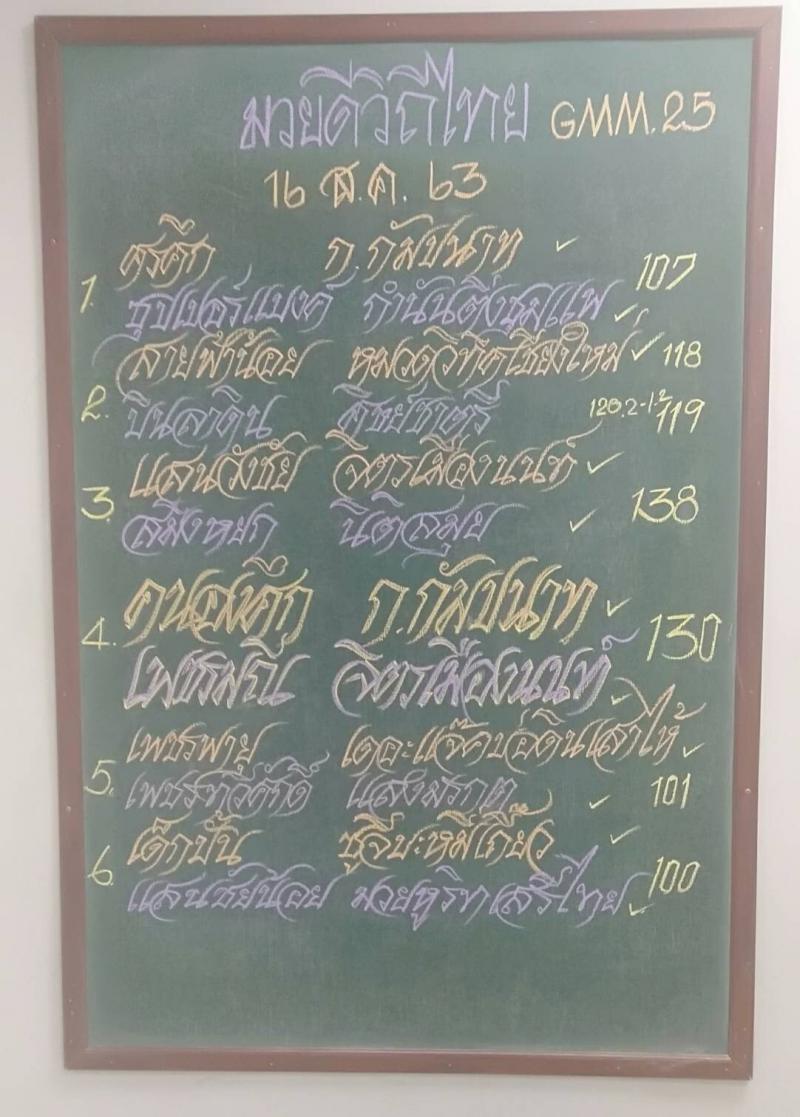 มวยดีวิถีไทย GMM.25
16 ส.ค. 63
1. ศรศึก ก.กัมปนาท ✓ 107
ซุปเปอร์แบงค์ กำนันติ่งชุมแพ ✓
2. สายฟ้าน้อย หมวดวิทิตเชียงใหม่ ✓ 118
บินลาดิน ศิษย์ชาตรี 120.2-1.2 119
3. แสนวังชัย จิตรเมืองนนท์ ✓ 138
สมิงหยก นิติสมุย ✓
4. คนองศึก ก.กัมปนาท ✓ 130
เพชรมณี จิตรเมืองนนท์ ✓
5. เพชรพายุ เดอะแจ๊คบ่อดินเสาไห้ ✓
เพชรทวีศักดิ์ แสงมรกต ✓ 101
6. เด็กปั้น ซูจีบะหมี่เกี๊ยว ✓ 100
แสนชัยน้อย มวยหูริทเสรีไทย ✓